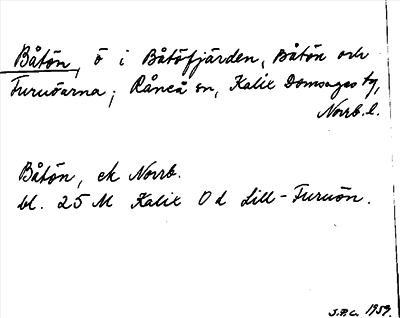 Båtön, ö i Båtöfjärden, Båtön och
Furuöarna; Råneå sn, Kalix Domsagas tg,
Norrb. l.
Båtön, ek Norrb.
bl. 25 M Kalix O d Lill-Furuön.
J.P.C. 1959.